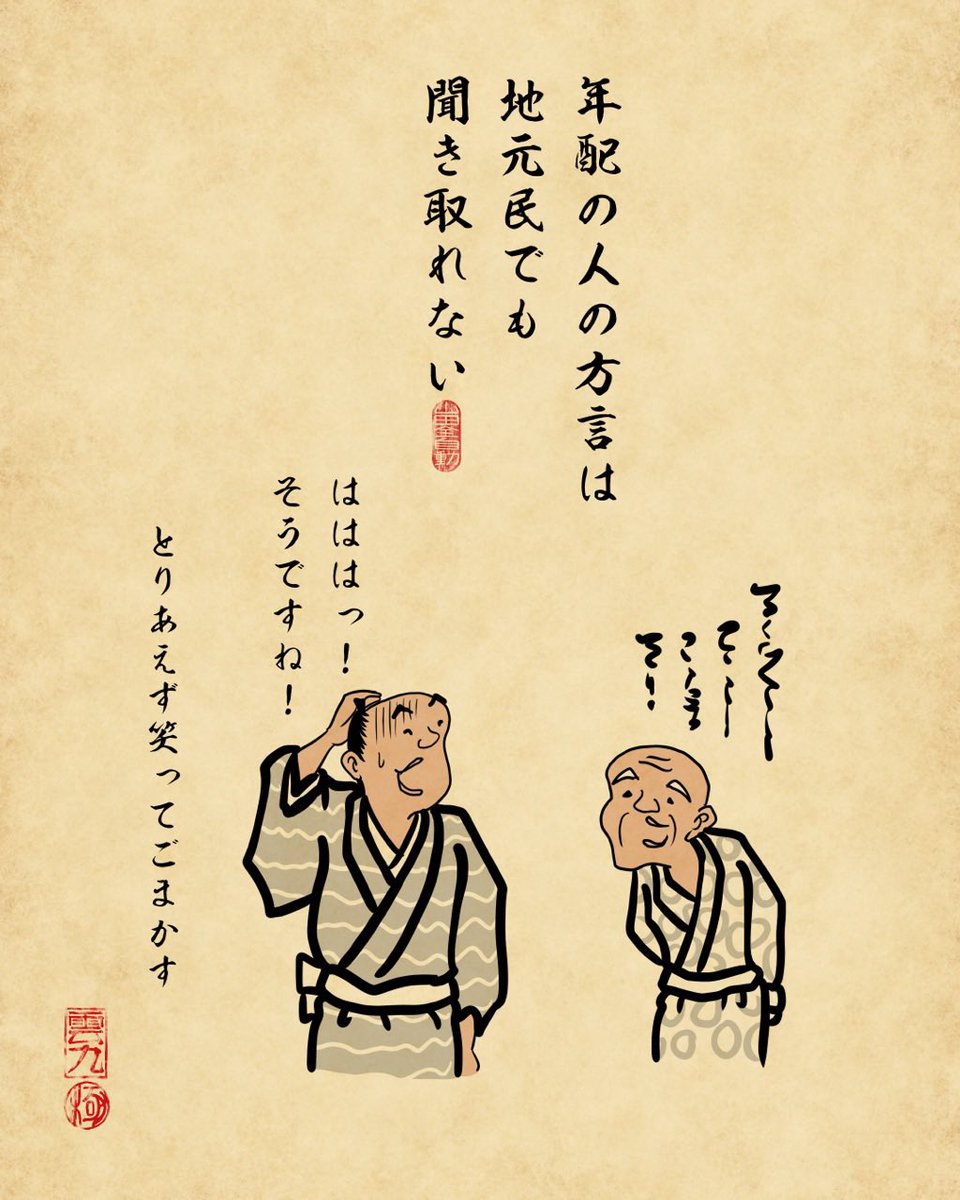 年配の人の方言は
地元民でも
聞き取れない
はははっ！
そうですね！
とりあえず笑ってごまかす